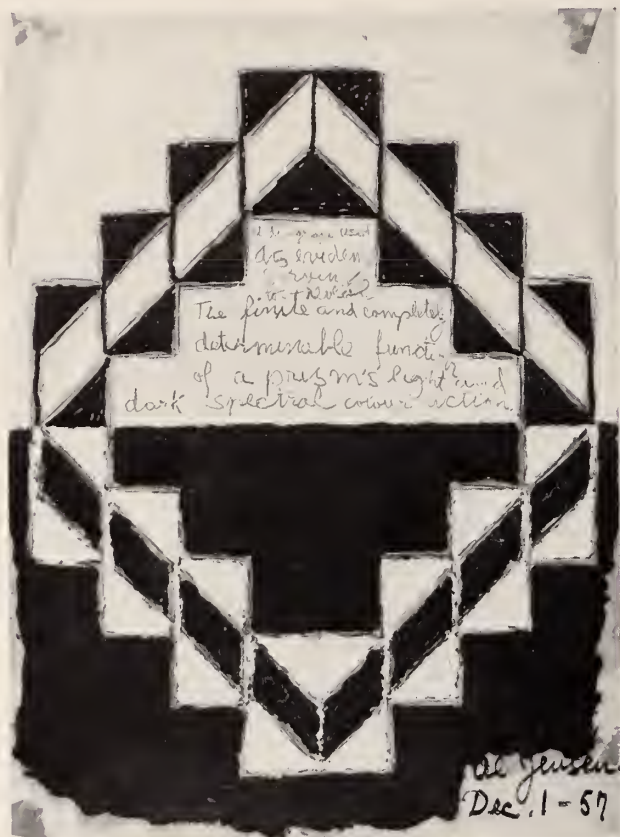 The finite and completely
determinable functi-
of a prism's light and
dark spectral colour action
Al Jensen
Dec. 1 - 57